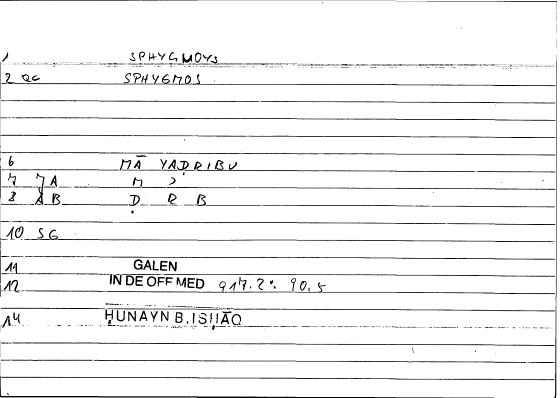 1 SPHYGMOYS
2 QC SPHYGMOS
6 MĀ YAḌRIBU
7 JA M
8 AB Ḍ R B
10 SG
11 GALEN
12 IN DE OFF MED 917.2: 90,5
14 ḤUNAYN B. ISḤĀQ